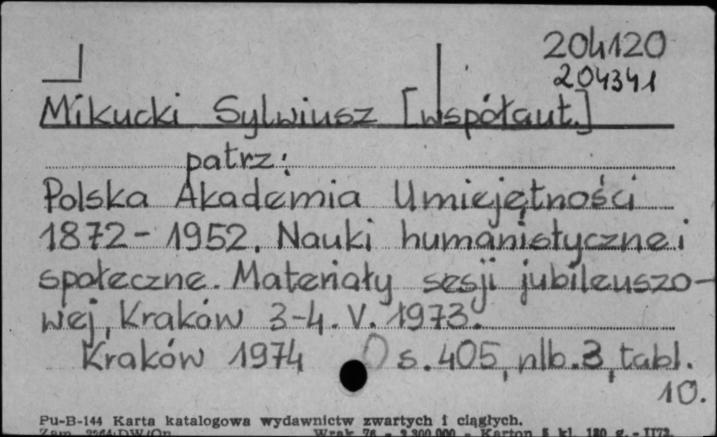 204120
204341
Mikucki Sylwiusz [współaut.]
patrz:
Polska Akademia Umiejętności
1872-1952. Nauki humanistyczne i
społeczne. Materiały sesji jubileuszo-
wej, Kraków 3-4. V. 1973.
Kraków 1974 s. 405, nlb. 3, tabl.
10.
Pu-B-144 Karta katalogowa wydawnictw zwartych i ciągłych.
Karton 5 kl. 180 g.